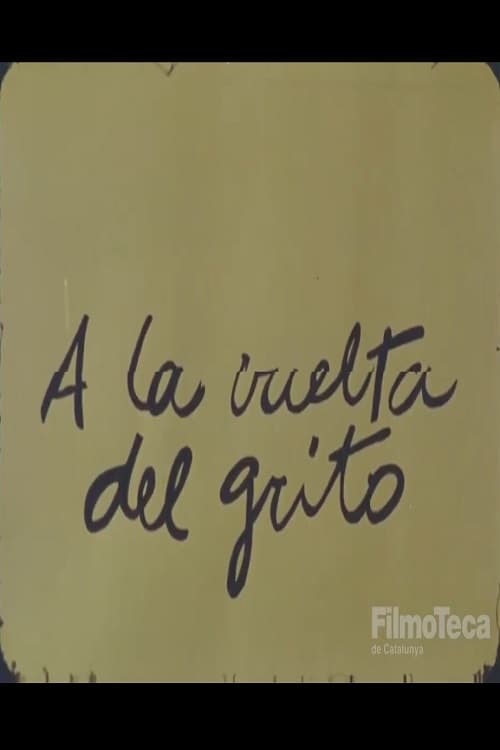 A la vuelta
del grito
FilmoTeca
de Catalunya